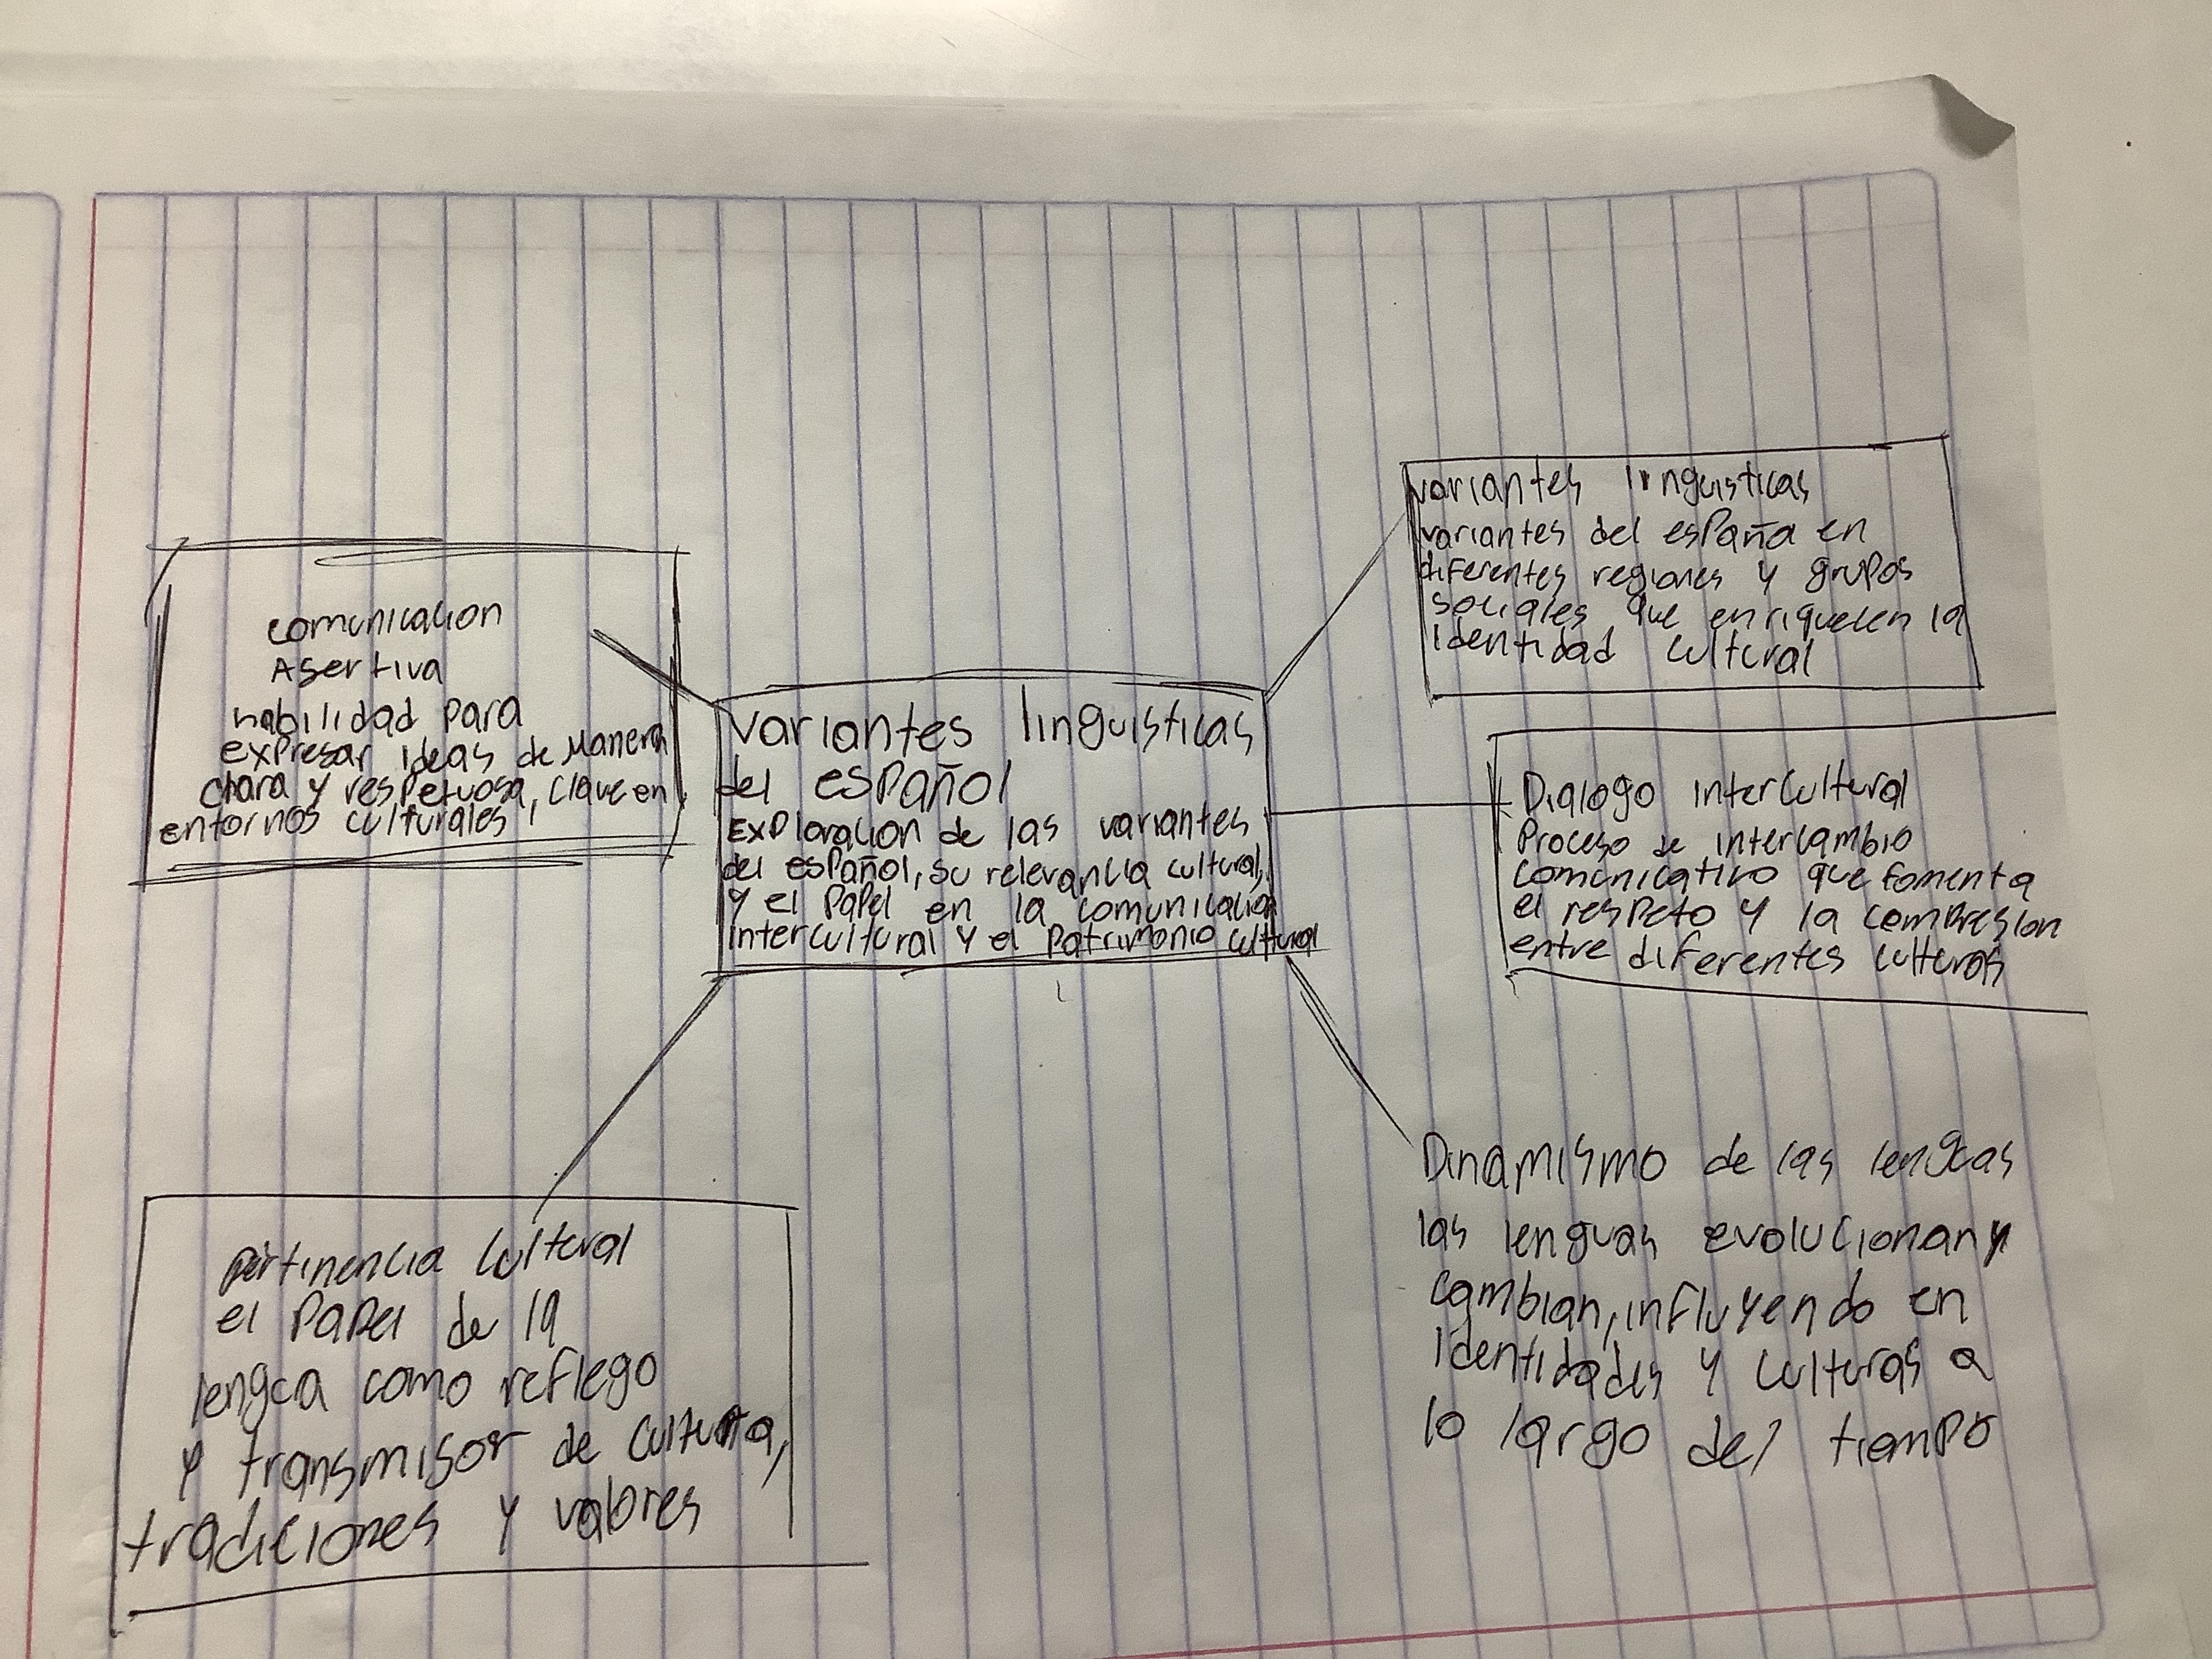 comunicacion
Asertiva
habilidad para
expresar ideas de Manera
clara y respetuosa, clave en
entornos culturales,
variantes linguisticas
del español
Exploracion de las variantes
del español, su relevancia cultural,
y el papel en la comunicacion
intercultural y el patrimonio cultural
variantes linguisticas
variantes del españa en
diferentes regiones y grupos
sociales que enriquecen la
identidad cultural
Dialogo intercultural
Proceso de intercambio
comunicativo que fomenta
el respeto y la compresion
entre diferentes culturas
pertinencia cultural
el papel de la
lengua como reflego
y transmisor de cultura,
tradiciones y valores
Dinamismo de las lenguas
las lenguas evolucionan y
cambian, influyendo en
identidades y culturas a
lo largo del tiempo